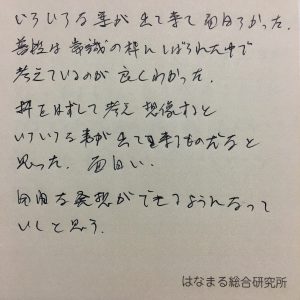 いろいろな事が出て来て面白かった.
普段は常識の枠にしばられた中で
考えているのが良くわかった.
枠をはずして考え想像すると
いろいろ事が出て来るものだなと
思った. 面白い.
自由な発想ができるようになって
いいと思う.
はなまる総合研究所